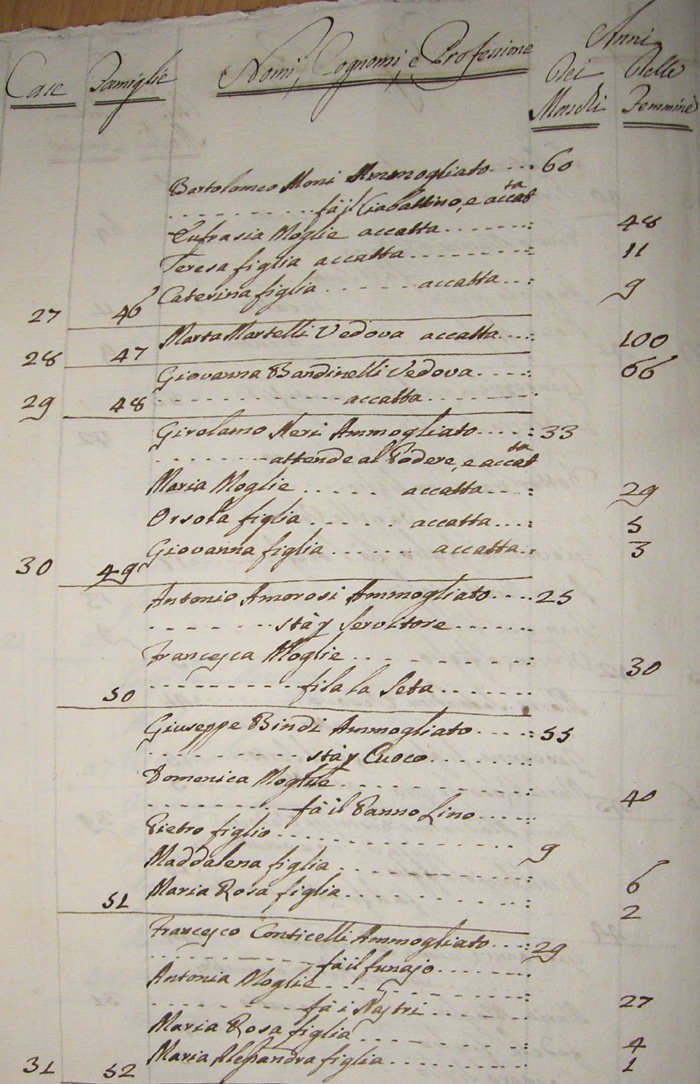 Case Famiglie Nomi, Cognomi, e Professione Anni
Dei Maschi Delle Femmine
Bartolomeo Moni Ammogliato 60
fà il Ciabattino, e accatta
Eufrasia Moglie accatta 48
Teresa figlia accatta 11
27 46 Caterina figlia accatta 9
28 47 Marta Martelli Vedova accatta 100
Giovanna Bandinelli Vedova 66
29 48 accatta
Girolamo Neri Ammogliato 33
attende al Podere, e accatta
Maria Moglie accatta 29
Orsola figlia accatta 5
30 49 Giovanna figlia accatta 3
Antonio Amorosi Ammogliato 25
stà p Servitore
Francesca Moglie 30
50 fila la Seta
Giuseppe Bindi Ammogliato 55
stà p Cuoco
Domenica Moglie
fà il Panno Lino 40
Pietro figlio 9
Maddalena figlia 6
51 Maria Rosa figlia 2
Francesco Conticelli Ammogliato 29
fà il funajo
Antonia Moglie
fà i Nastri 27
Maria Rosa figlia 4
31 52 Maria Alessandra figlia 1